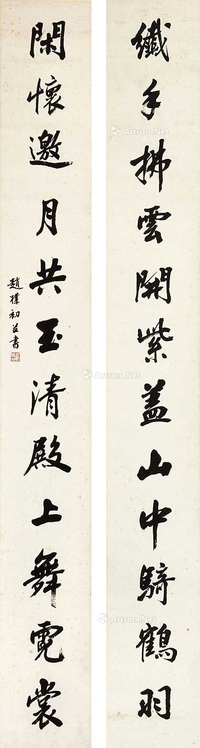 纖手拂雲開紫盖山中騎鶴羽
閑懷邀月共玉清殿上舞霓裳
趙樸初並書